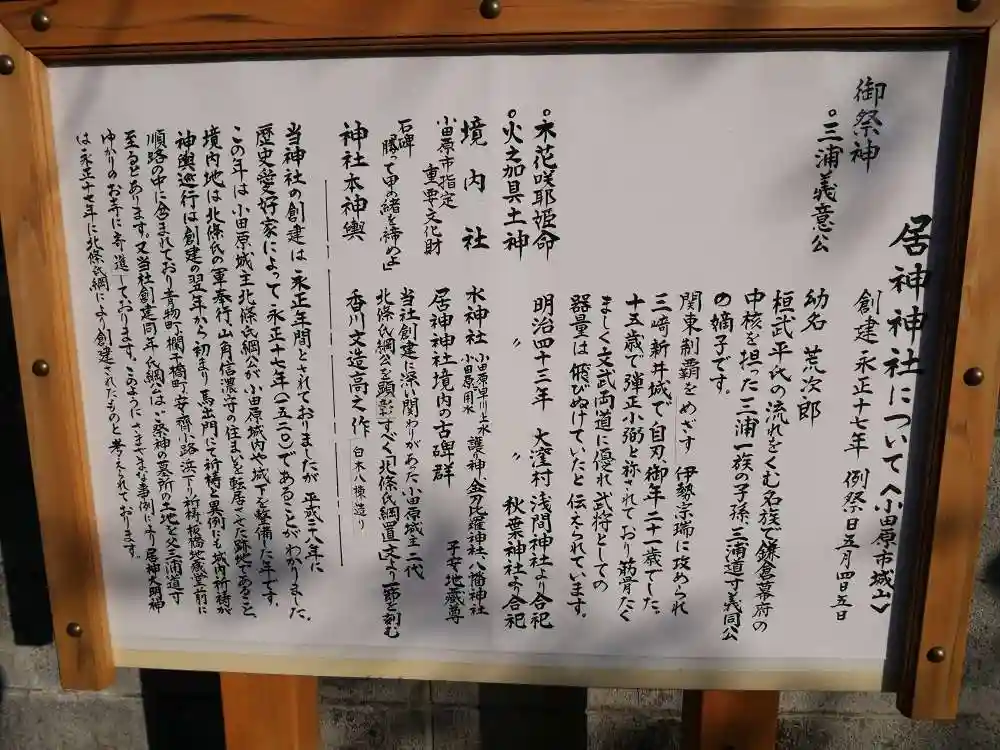 居神神社について〈小田原市城山〉
創建 永正十七年 例祭日五月四日五日
御祭神
○三浦義意公
幼名 荒次郎
桓武平氏の流れをくむ名族で鎌倉幕府の
中核を担った三浦一族の子孫、三浦道寸義同公
の嫡子です。
関東制覇をめざす 伊勢宗瑞に攻められ
三崎新井城で自刃、御年二十一歳でした。
十五歳で弾正小弼と称されており 筋骨たく
ましく文武両道に優れ 武将としての
器量は飛びぬけていたと伝えられています。
○木花咲耶姫命 明治四十三年 大窪村 浅間神社より合祀
○火之加具土神 〃 〃 秋葉神社より合祀
境内社 水神社 小田原早川上水 小田原用水 護り神 金刀比羅神社、八幡神社
子安地蔵尊
小田原市指定 重要文化財 居神神社境内の古碑群
石碑 勝って甲の緒を締めよ 当社創建に深い関わりがあった小田原城主二代
北條氏綱公を顕彰すべく「北條氏綱置文」より一節を刻む
神社本神輿 香川文造高之作 白木八棟造り
当神社の創建は 永正年間とされておりましたが 平成二八年に
歴史愛好家によって 永正十七年(一五二〇)であることがわかりました。
この年は 小田原城主北條氏綱公が小田原城内や城下を整備した年です。
境内地は北條氏の軍奉行、山角信濃守の住まいを転居させた跡地であること、
神輿巡行は創建の翌年から初まり 馬出門にて祈祷と異例にも城内祈祷が
順路の中に含まれており 青物町 欄干橋町 安斎小路 浜下り祈祷 板橋地蔵堂前に
至るとあります。又当社創建同年 氏綱公は、祭神の墓所の土地を父三浦道寸
ゆかりのお寺に寄進しております。このように さまざまな事例により 居神大明神
は永正十七年に北條氏綱により創建されたものと考えられております。